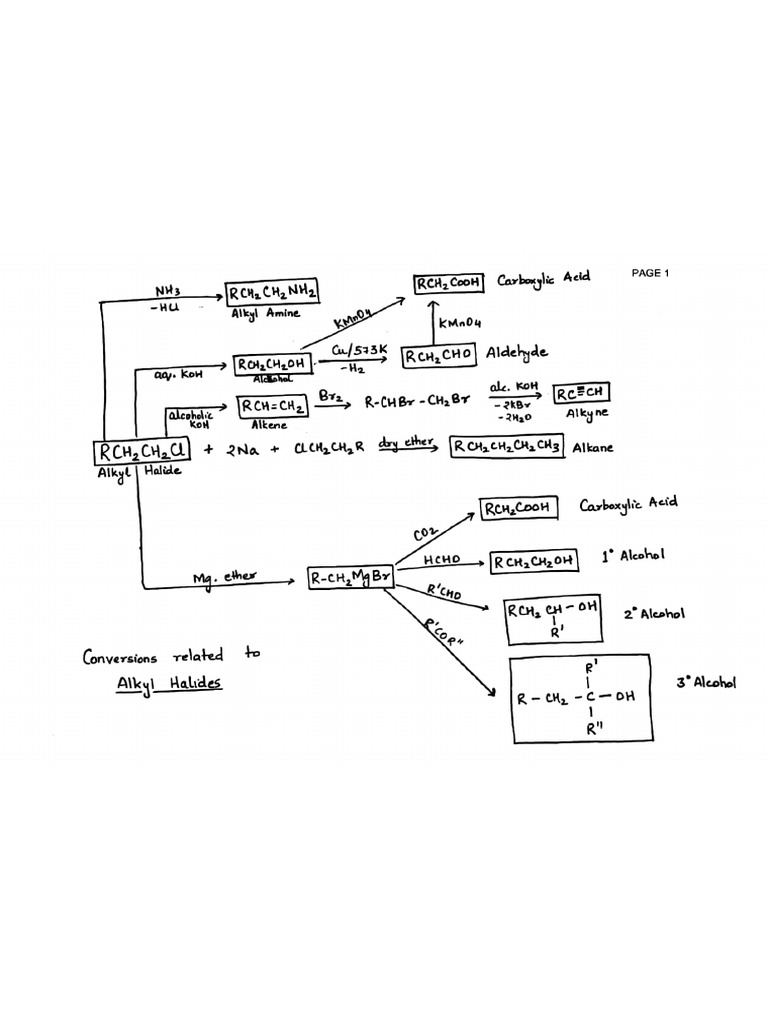 PAGE 1
NH3
-HCl
RCH2CH2NH2
Alkyl Amine
RCH2COOH Carboxylic Acid
KMnO4
KMnO4
aq. KOH
RCH2CH2OH
Alcohol
Cu/573K
-H2
RCH2CHO Aldehyde
alcoholic
KOH
RCH=CH2
Alkene
Br2
R-CHBr-CH2Br
alc. KOH
-2KBr
-2H2O
RC≡CH
Alkyne
RCH2CH2Cl + 2Na + ClCH2CH2R dry ether RCH2CH2CH2CH3 Alkane
Alkyl Halide
Mg. ether
R-CH2MgBr
CO2
RCH2COOH Carboxylic Acid
HCHO
RCH2CH2OH 1° Alcohol
R'CHO
RCH2CH-OH
R'
2° Alcohol
R'COR"
R'
R-CH2-C-OH
R"
3° Alcohol
Conversions related to
Alkyl Halides